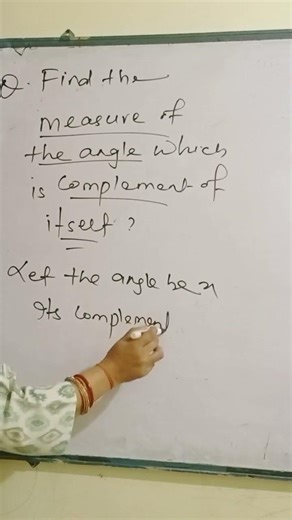 Q. Find the
measure of
the angle which
is complement of
itself ?
Let the angle be x
Its complement